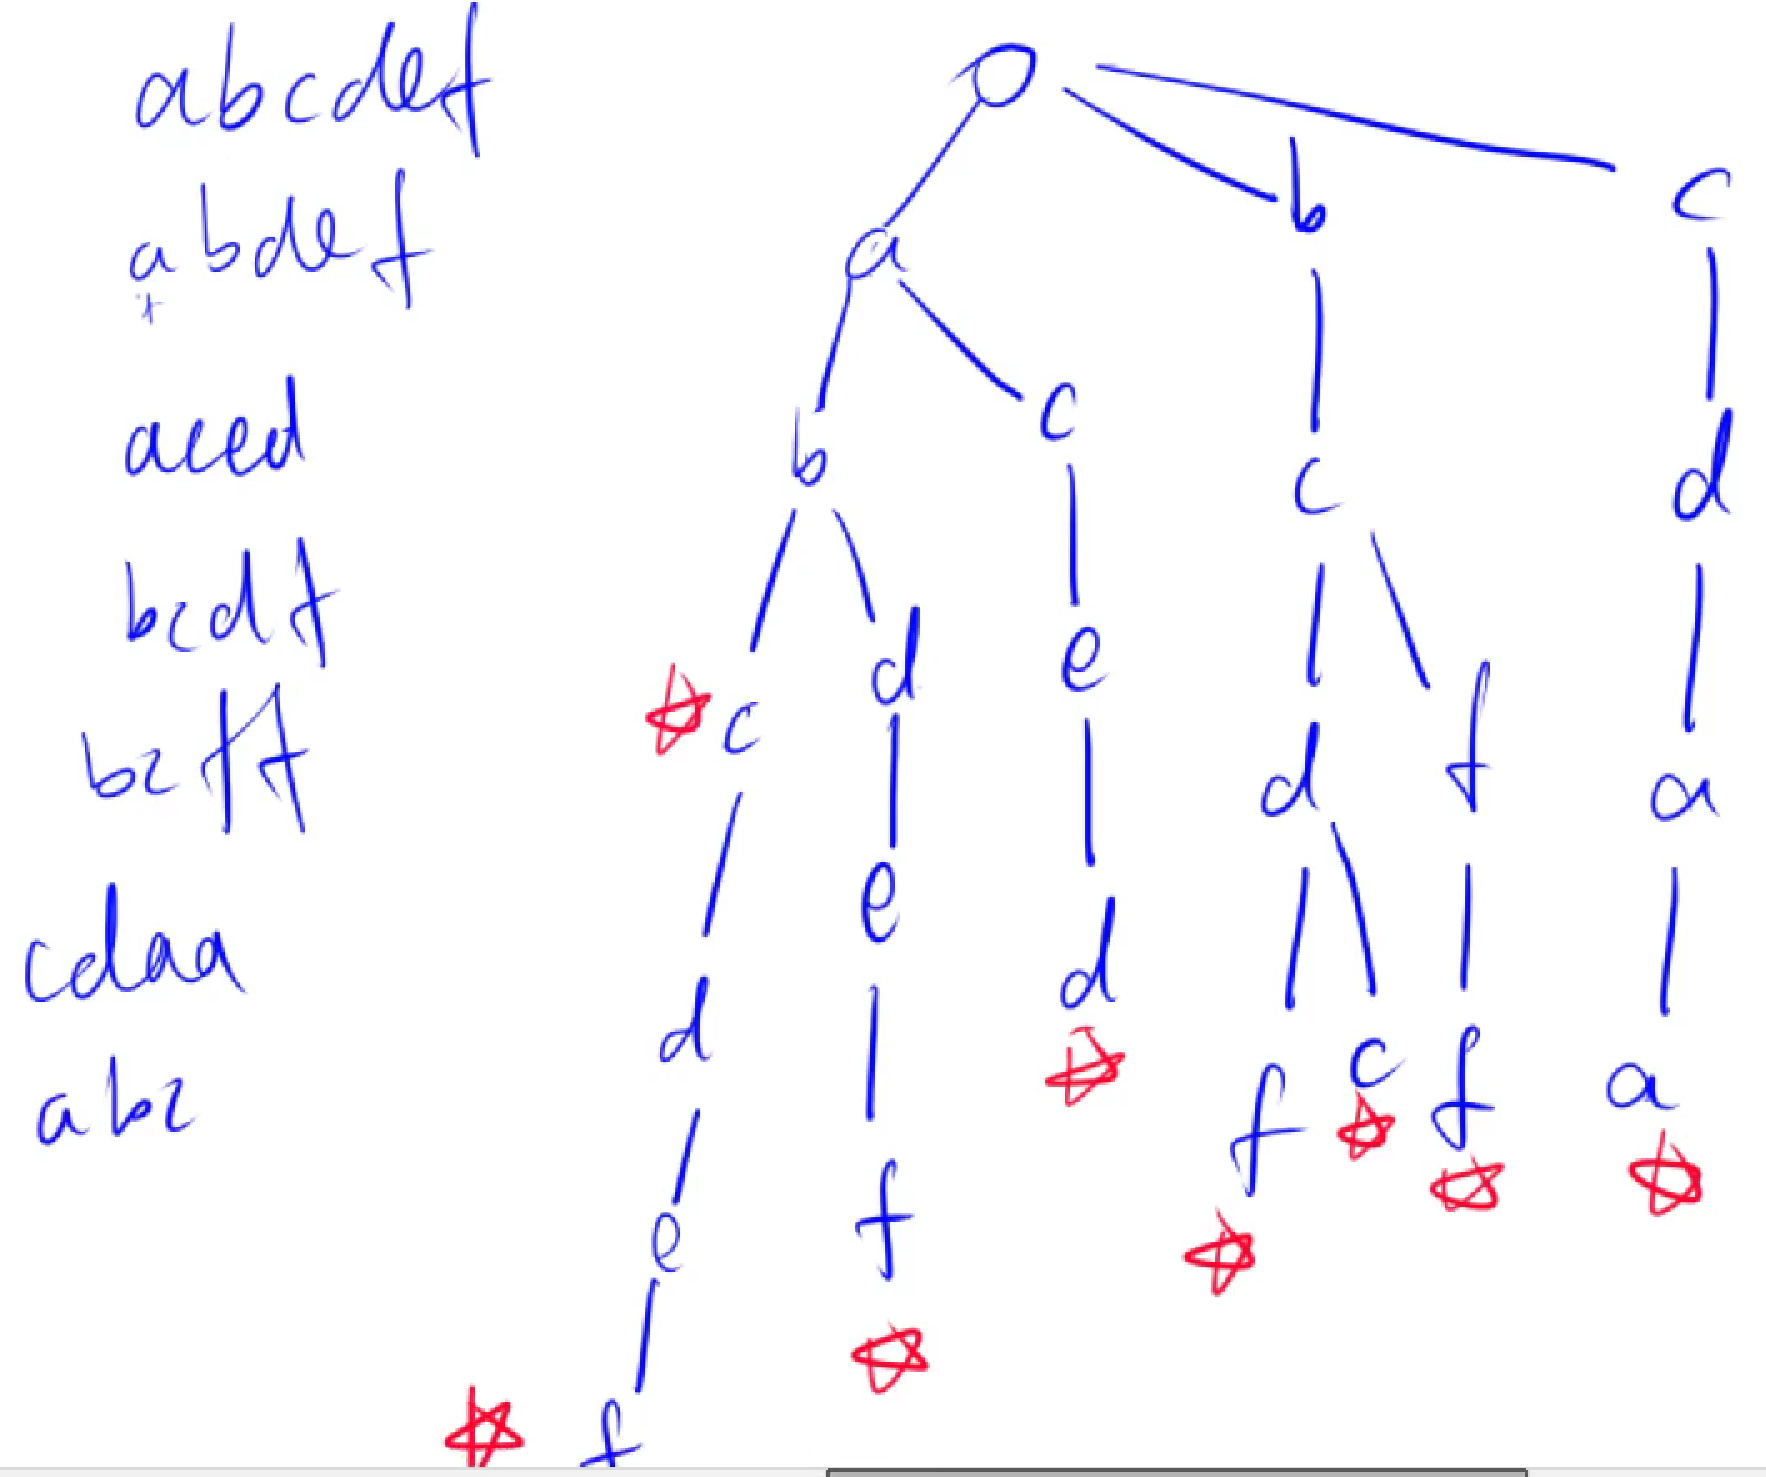 abcdef
abdef
aced
bcdf
bcff
cdaa
abc
a b c
b c c d
c d e d f a
d e d f c f a
e f
f